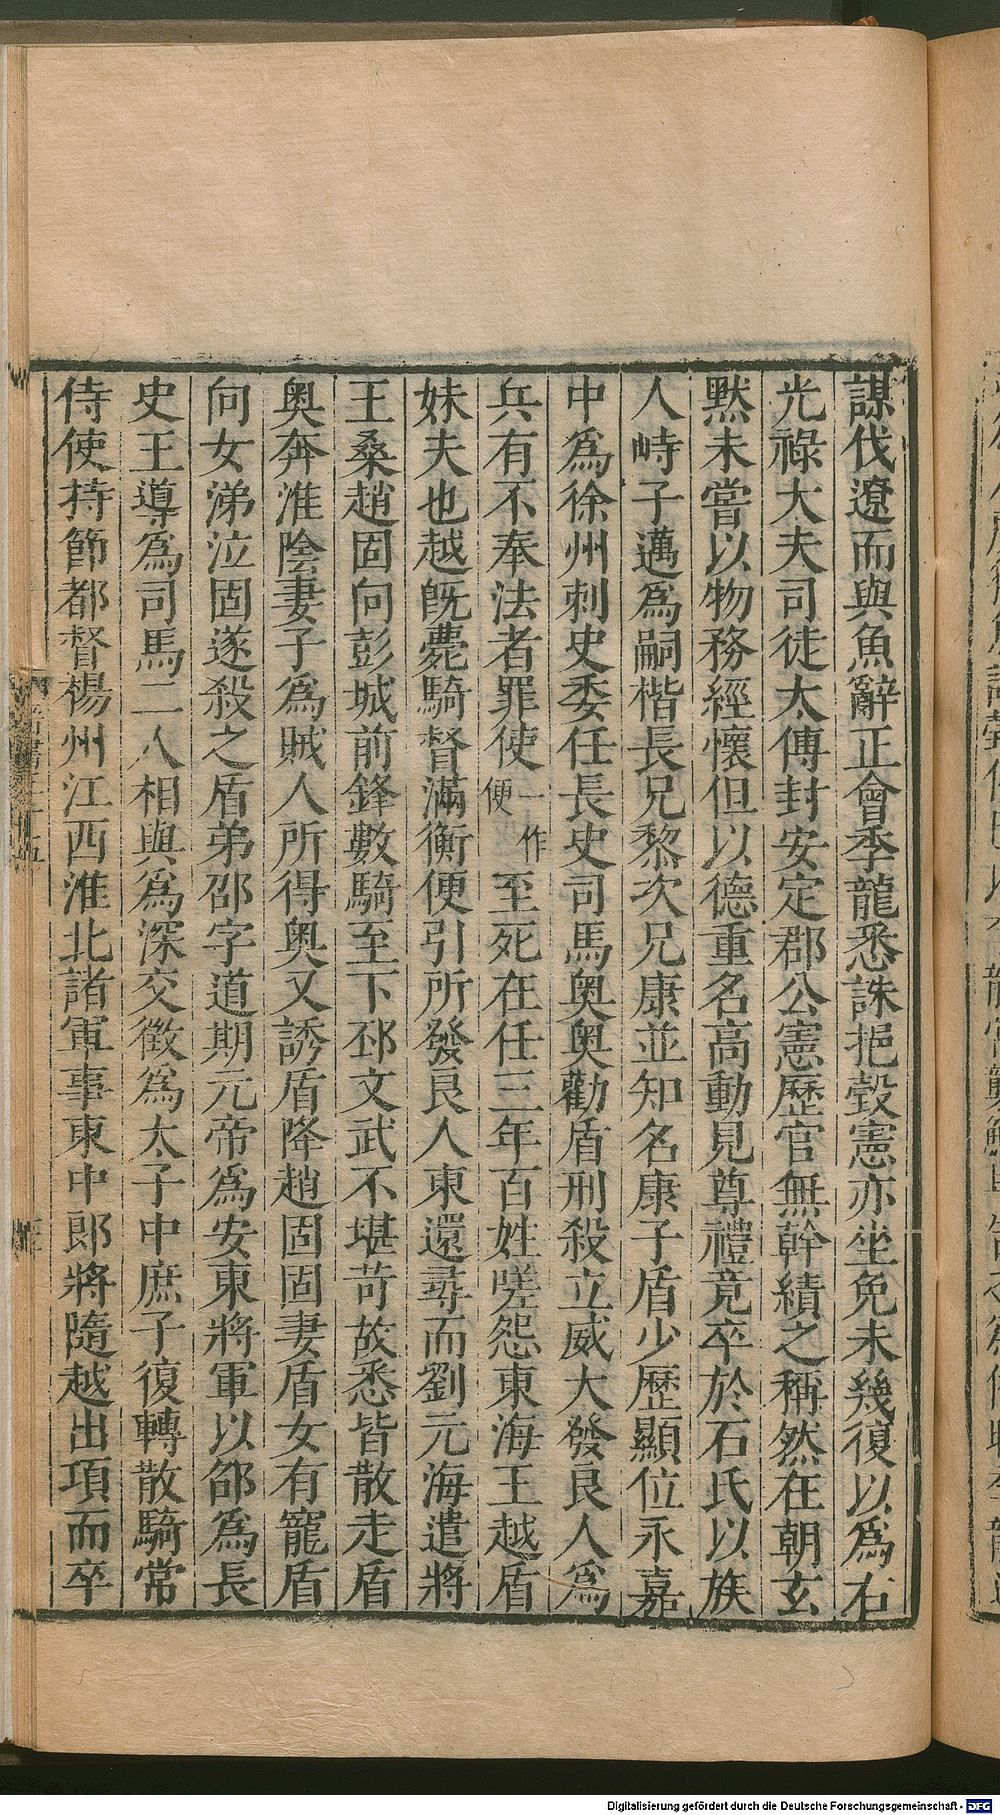 謀伐遼而與魚辭正會季龍悉誅挹瑴憲亦坐免未幾復以爲右
光祿大夫司徒太傅封安定郡公憲歷官無幹績之稱然在朝玄
黙未嘗以物務經懷但以德重名高動見尊禮竟卒於石氏以族
人峙子邁爲嗣楷長兄黎次兄康並知名康子盾少歷顯位永嘉
中爲徐州刺史委任長史司馬奥奥勸盾刑殺立威大發良人爲
兵有不奉法者罪使一作便至死在任三年百姓嗟怨東海王越盾
妹夫也越既薨騎督滿衡便引所發良人東還尋而劉元海遣將
王桑趙固向彭城前鋒數騎至下邳文武不堪苛故悉皆散走盾
奥奔淮陰妻子爲賊人所得奥又誘盾降趙固固妻盾女有寵盾
向女涕泣固遂殺之盾弟邵字道期元帝爲安東將軍以邵爲長
史王導爲司馬二人相與爲深交徵爲太子中庶子復轉散騎常
侍使持節都督楊州江西淮北諸軍事東中郎將隨越出項而卒
Digitalisierung gefördert durch die Deutsche Forschungsgemeinschaft - DFG